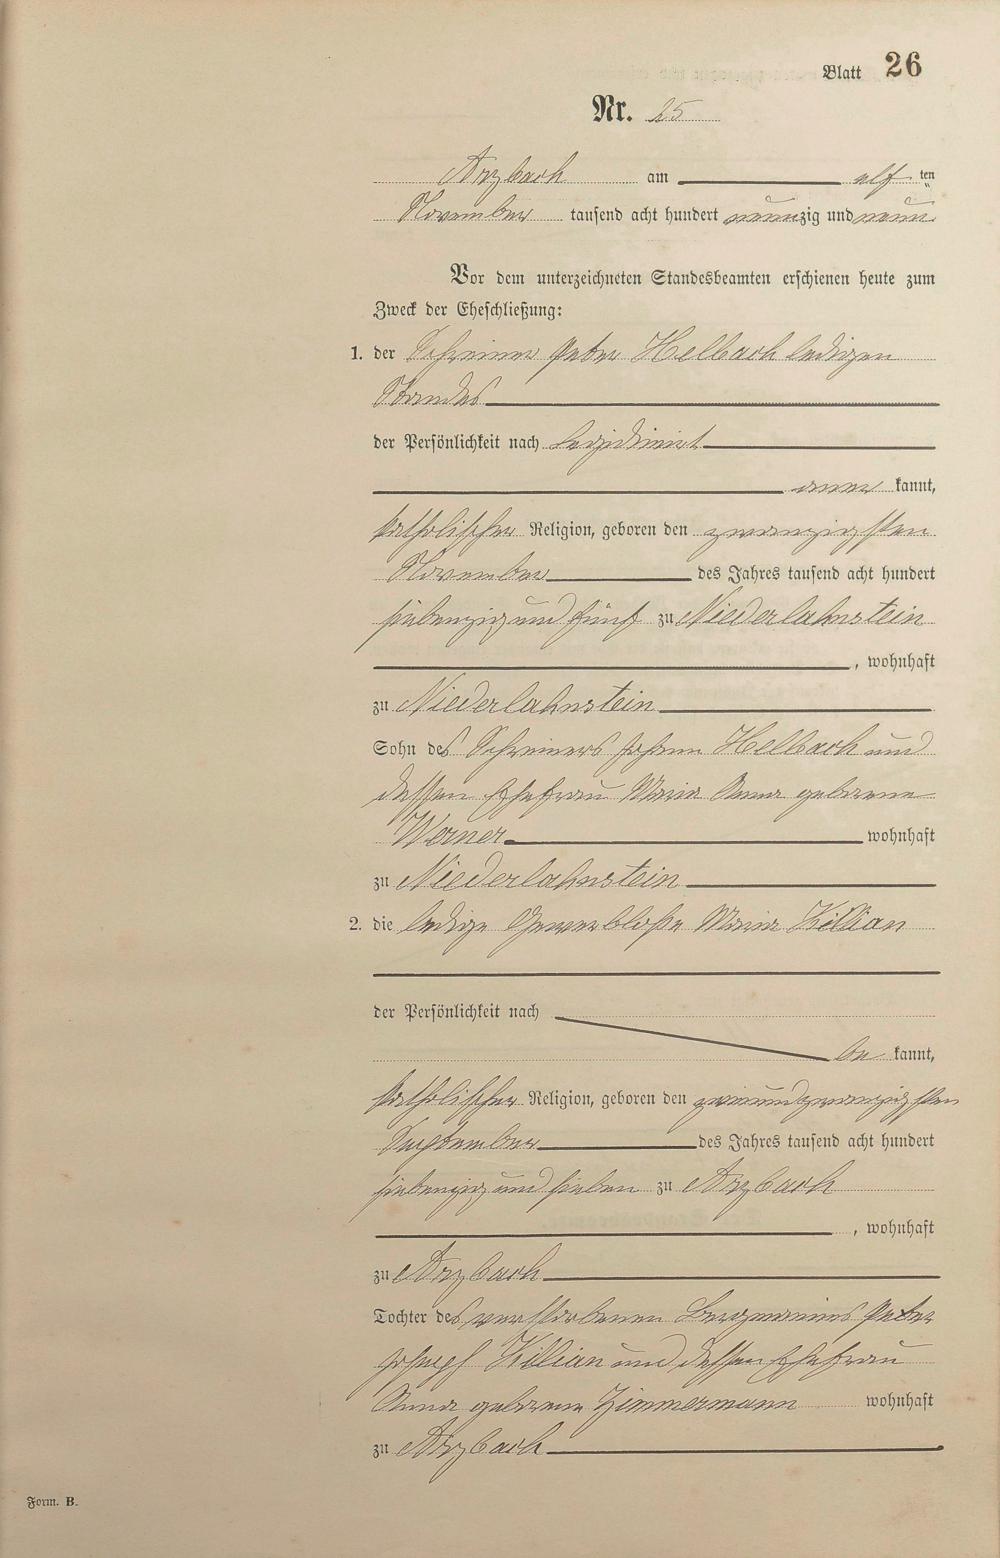 Blatt 26
Nr. 25
Arzbach am elf ten
November tausend acht hundert neunzig und neun
Vor dem unterzeichneten Standesbeamten erschienen heute zum
Zweck der Eheschließung:
1. der Schreiner Peter Helbach ledigen
Standes
der Persönlichkeit nach
aner kannt,
katholischer Religion, geboren den zwanzigsten
November des Jahres tausend acht hundert
siebenzig und fünf zu Niederlahnstein
, wohnhaft
zu Niederlahnstein
Sohn des Schreiners Johann Helbach und
dessen Ehefrau Maria Anna geborene
Werner wohnhaft
zu Niederlahnstein
2. die ledige Gewerbloße Maria Killian
der Persönlichkeit nach
be kannt,
katholischer Religion, geboren den zweiundzwanzigsten
September des Jahres tausend acht hundert
siebenzig und sieben zu Arzbach
, wohnhaft
zu Arzbach
Tochter des verstorbenen Bergmanns Peter
Joseph Killian und dessen Ehefrau
Anna geborene Zimmermann wohnhaft
zu Arzbach
Form. B.